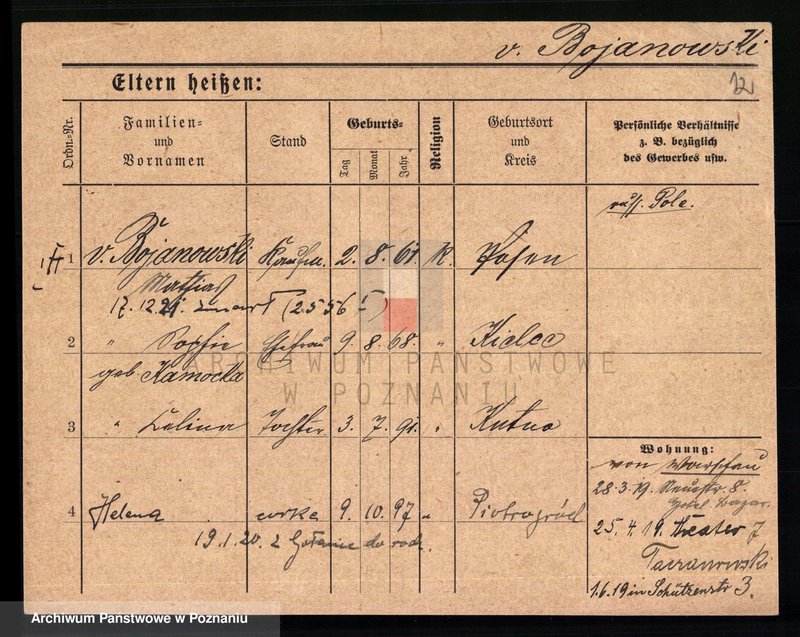 v. Bojanowski
12
Eltern heißen:
Ordn.-Nr.
Familien- und Vornamen
Stand
Geburts-
Tag
Monat
Jahr
Religion
Geburtsort und Kreis
Persönliche Verhältnisse
z. B. bezüglich
des Gewerbes usw.
russ. Pole.
1 v. Bojanowski Kaufm. 2. 8. 61 K. Posen
Mathias
17.12.21. zmarł (2556
2 " Sophie Ehefrau 9. 8. 68. " Kielce
geb. Kamocka
3 " Celina Tochter 3. 7. 91. " Kutno
Wohnung:
von Warschau
28.3.19. Neuestr. 8.
Hotel Bazar.
4 Helena corka 9. 10. 97 " Piotrogród
25.4.19. Theater 7
19.1.20. z do rodz.
Tacranowski
1.6.19 in Schützenstr 3.
ARCHIWUM PAŃSTWOWE
W POZNANIU
Archiwum Państwowe w Poznaniu